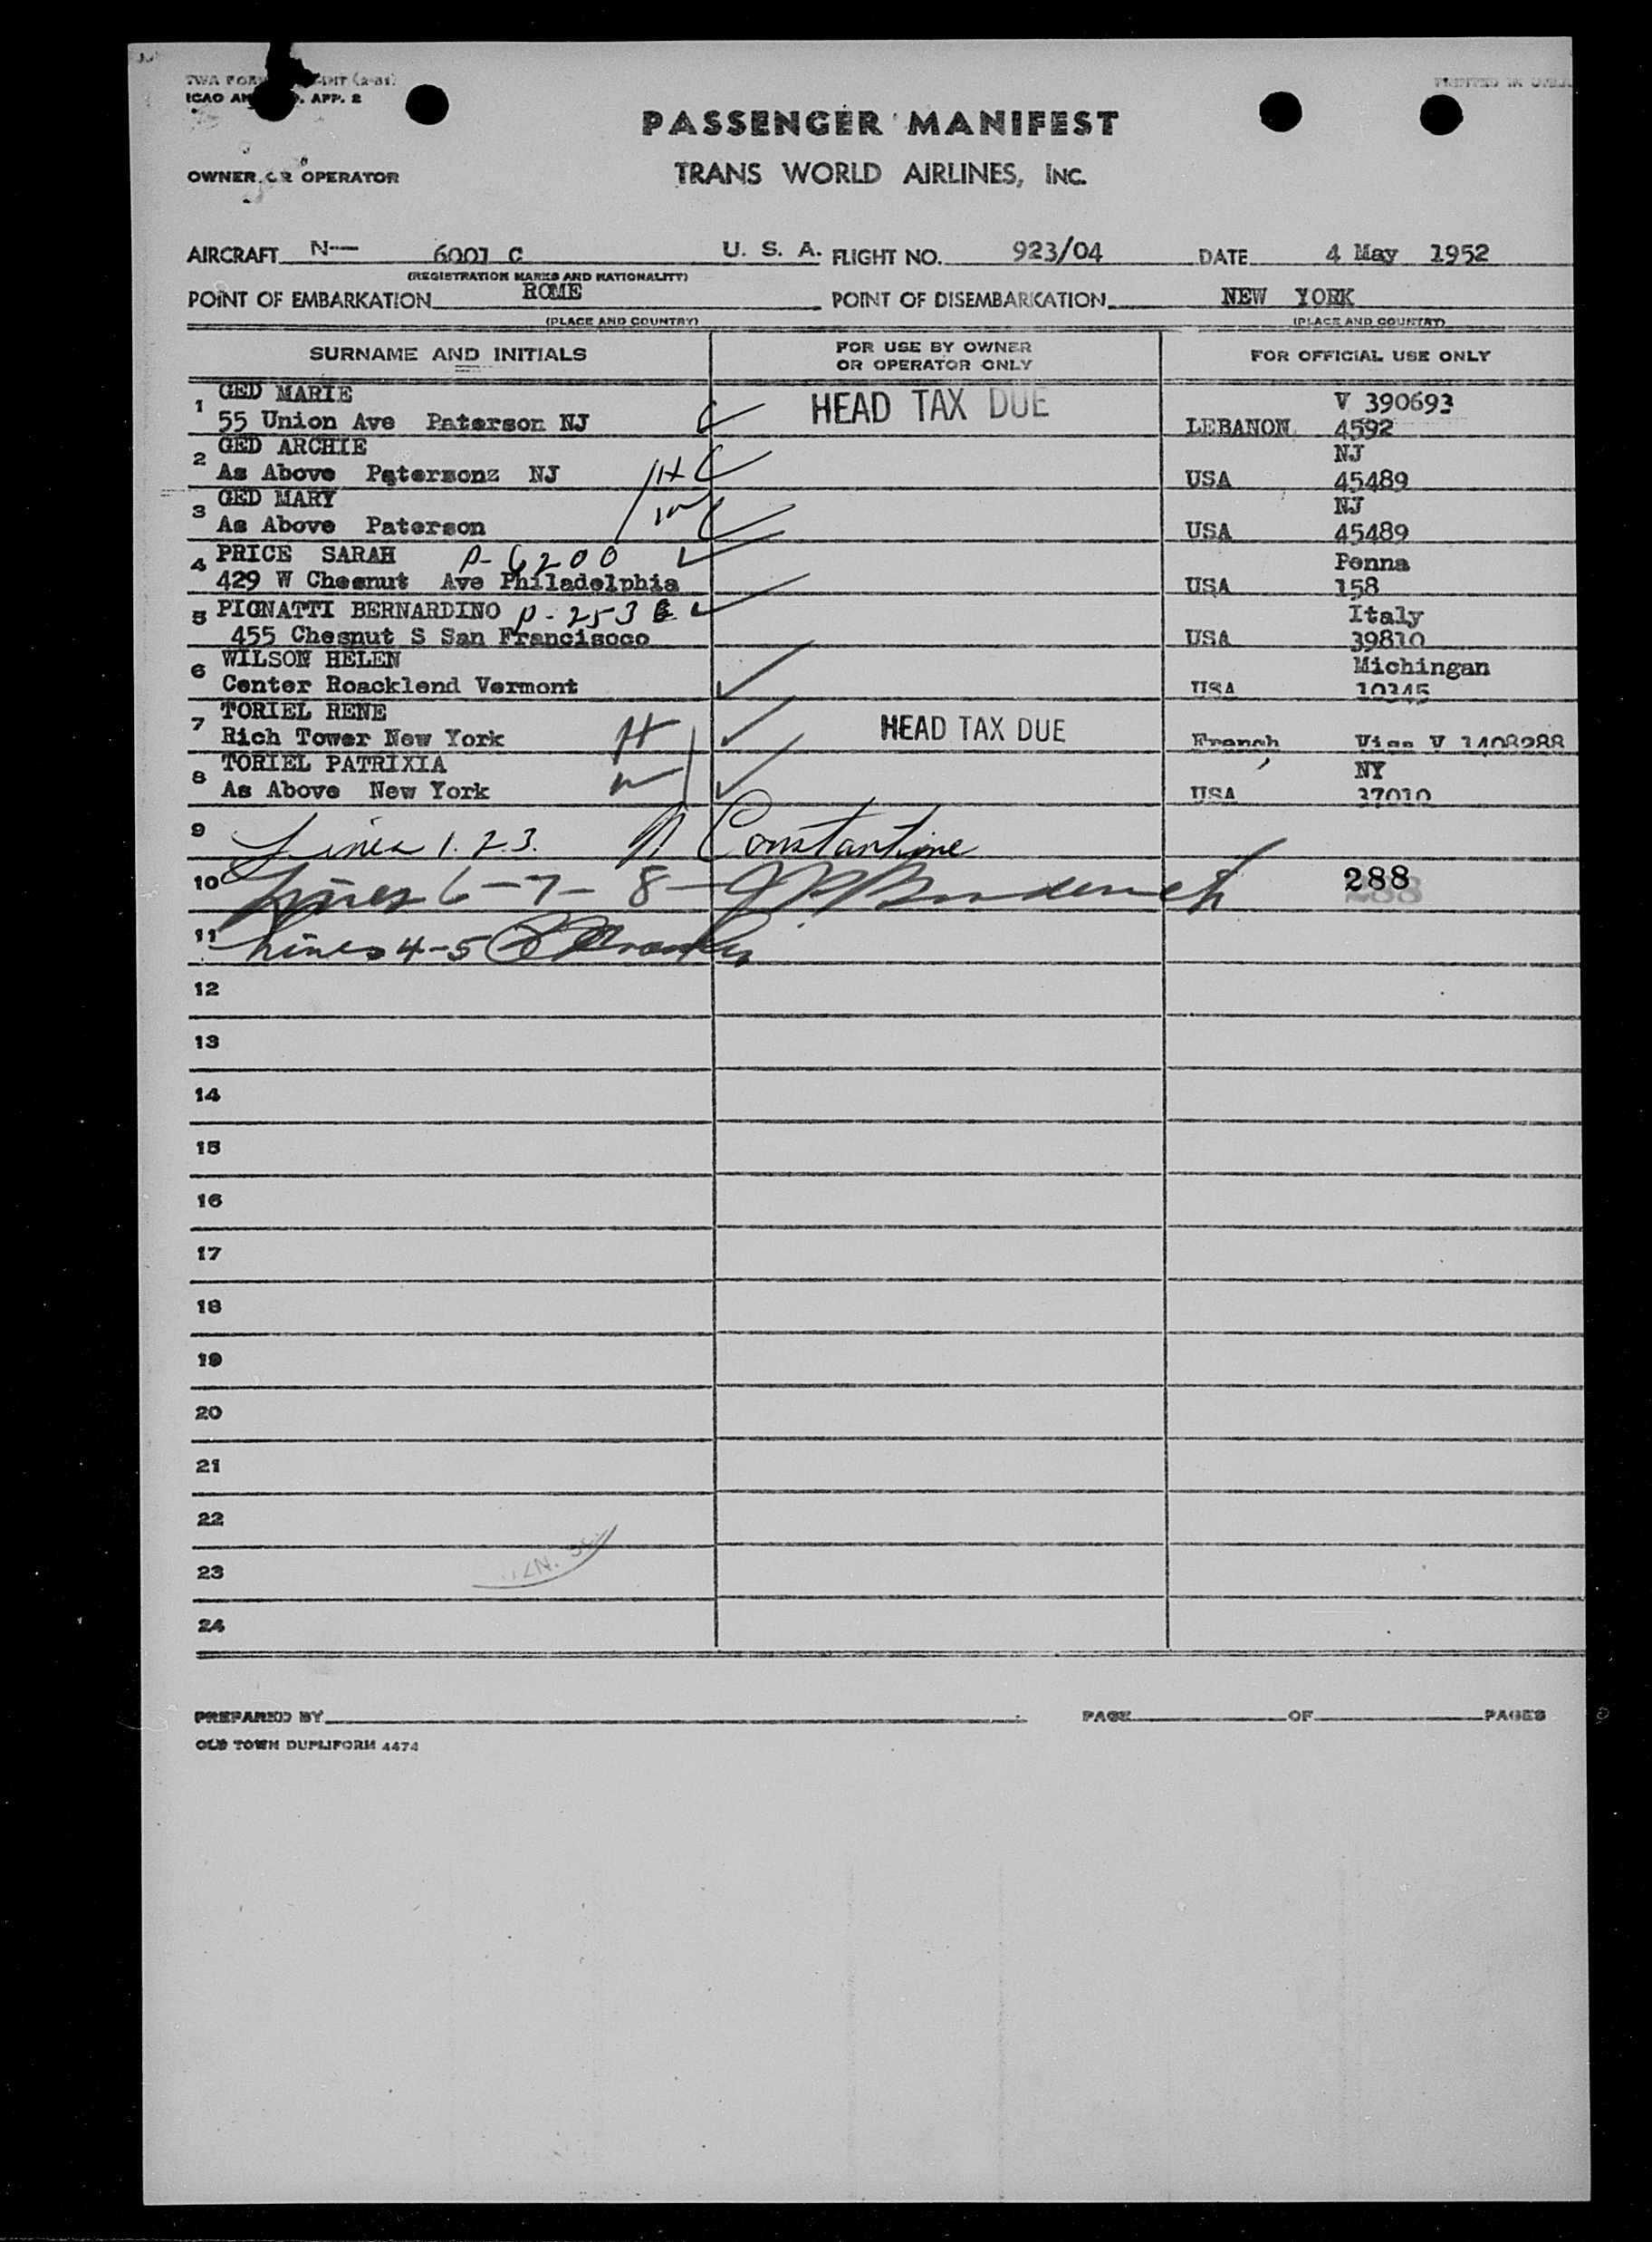 TWA FOR
ICAO AN . APP. 2
PRINTED IN U.S.A.
PASSENGER MANIFEST
OWNER OR OPERATOR
TRANS WORLD AIRLINES, INC.
AIRCRAFT N-- 6001 C U. S. A. FLIGHT NO. 923/04 DATE 4 May 1952
(REGISTRATION MARKS AND NATIONALITY)
POINT OF EMBARKATION ROME POINT OF DISEMBARKATION NEW YORK
(PLACE AND COUNTRY) (PLACE AND COUNTRY)
SURNAME AND INITIALS FOR USE BY OWNER OR OPERATOR ONLY FOR OFFICIAL USE ONLY
1 GED MARIE HEAD TAX DUE V 390693
55 Union Ave Paterson NJ LEBANON 4592
2 GED ARCHIE NJ
As Above Patersonz NJ USA 45489
3 GED MARY NJ
As Above Paterson USA 45489
4 PRICE SARAH P-6200 Penna
429 W Chesnut Ave Philadelphia USA 158
5 PIGNATTI BERNARDINO P-253 Italy
455 Chesnut S San Francisoco USA 39810
6 WILSON HELEN Michingan
Center Roacklend Vermont USA 10345
7 TORIEL RENE HEAD TAX DUE
Rich Tower New York French Visa V 1408288
8 TORIEL PATRIXIA NY
As Above New York USA 37010
9 Lines 1.2.3. N Constantine
10 Lines 6-7-8- 288
11 Lines 4-5
12
13
14
15
16
17
18
19
20
21
22
23
24
PREPARED BY PAGE OF PAGES
OLD TOWN DUPLIFORM 4474